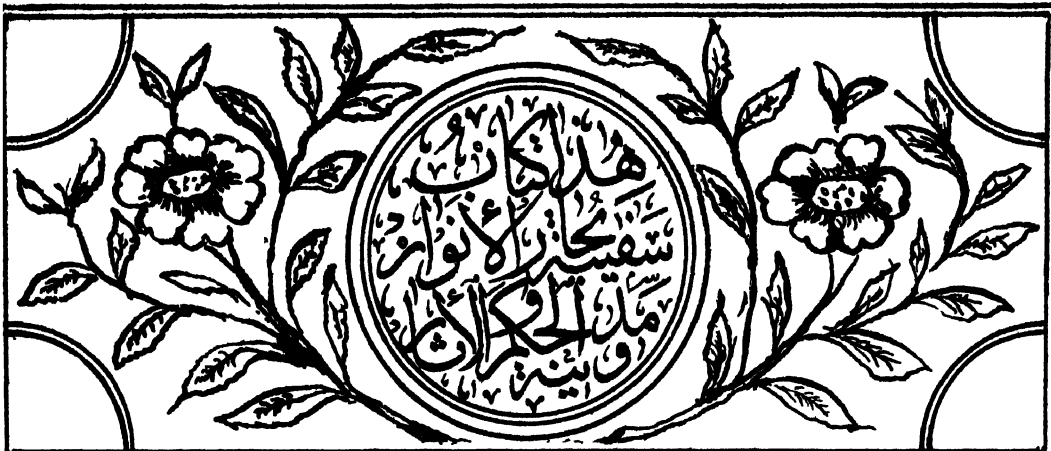 هذا كتاب
سفينة بحار الأنوار
ومدينة الحكم والآثار